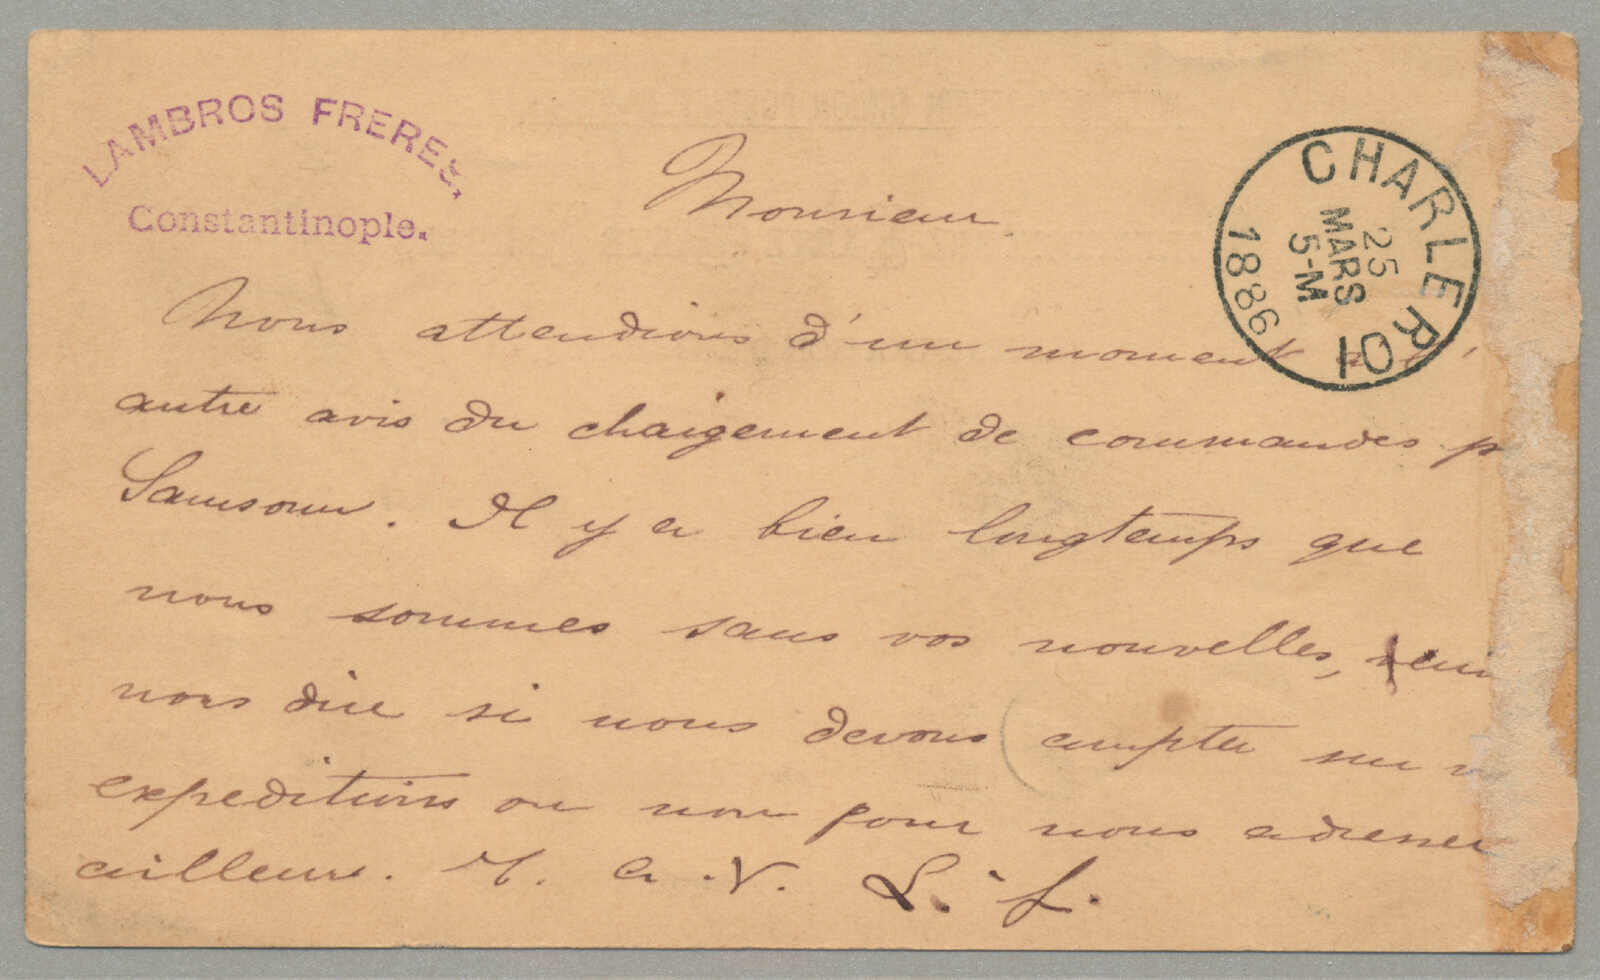 LAMBROS FRERES,
Constantinople.
CHARLEROI
25
MARS
5-M
1886
Monsieur
Nous attendions d'un moment à l'
autre avis du chargement de commandes p
Samsoun. Il y a bien longtemps que
nous sommes sans vos nouvelles,
nous dire si nous devons compter sur
expeditions ou non pour nous adresser
ailleurs. L. f.